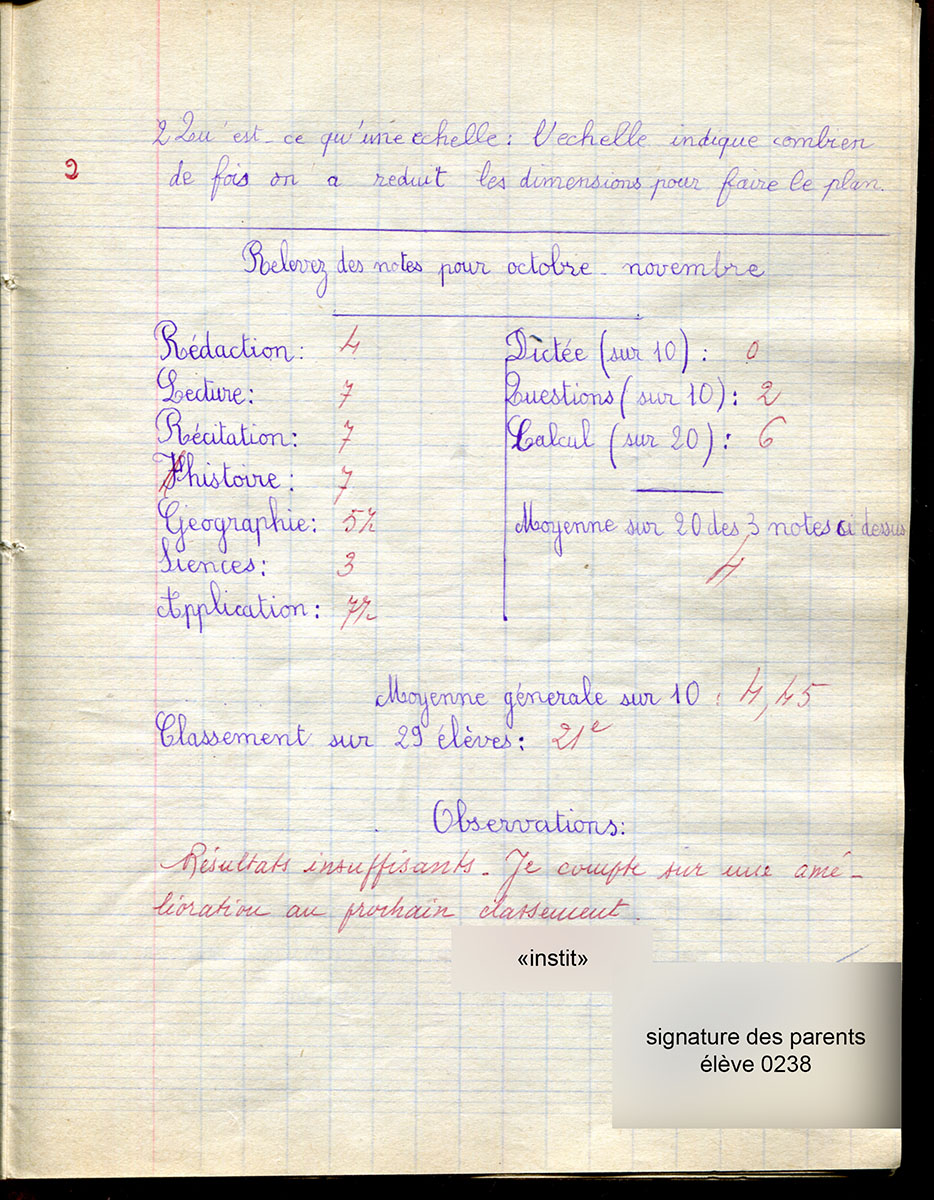 2 Qu'est-ce qu'une echelle: L'echelle indique combien
2
de fois on a reduit les dimensions pour faire le plan.
Relevez des notes pour octobre-novembre
Rédaction: 4
Lecture: 7
Récitation: 7
histoire: 7
Géographie: 5½
Siences: 3
Application: 7½
Dictée (sur 10): 0
Questions (sur 10): 2
Calcul (sur 20): 6
Moyenne sur 20 des 3 notes ci dessus
4
Moyenne génerale sur 10: 4,45
Classement sur 29 élèves: 21e
Observations:
Résultats insuffisants. Je compte sur une amé-
lioration au prochain classement.
«instit»
signature des parents
élève 0238